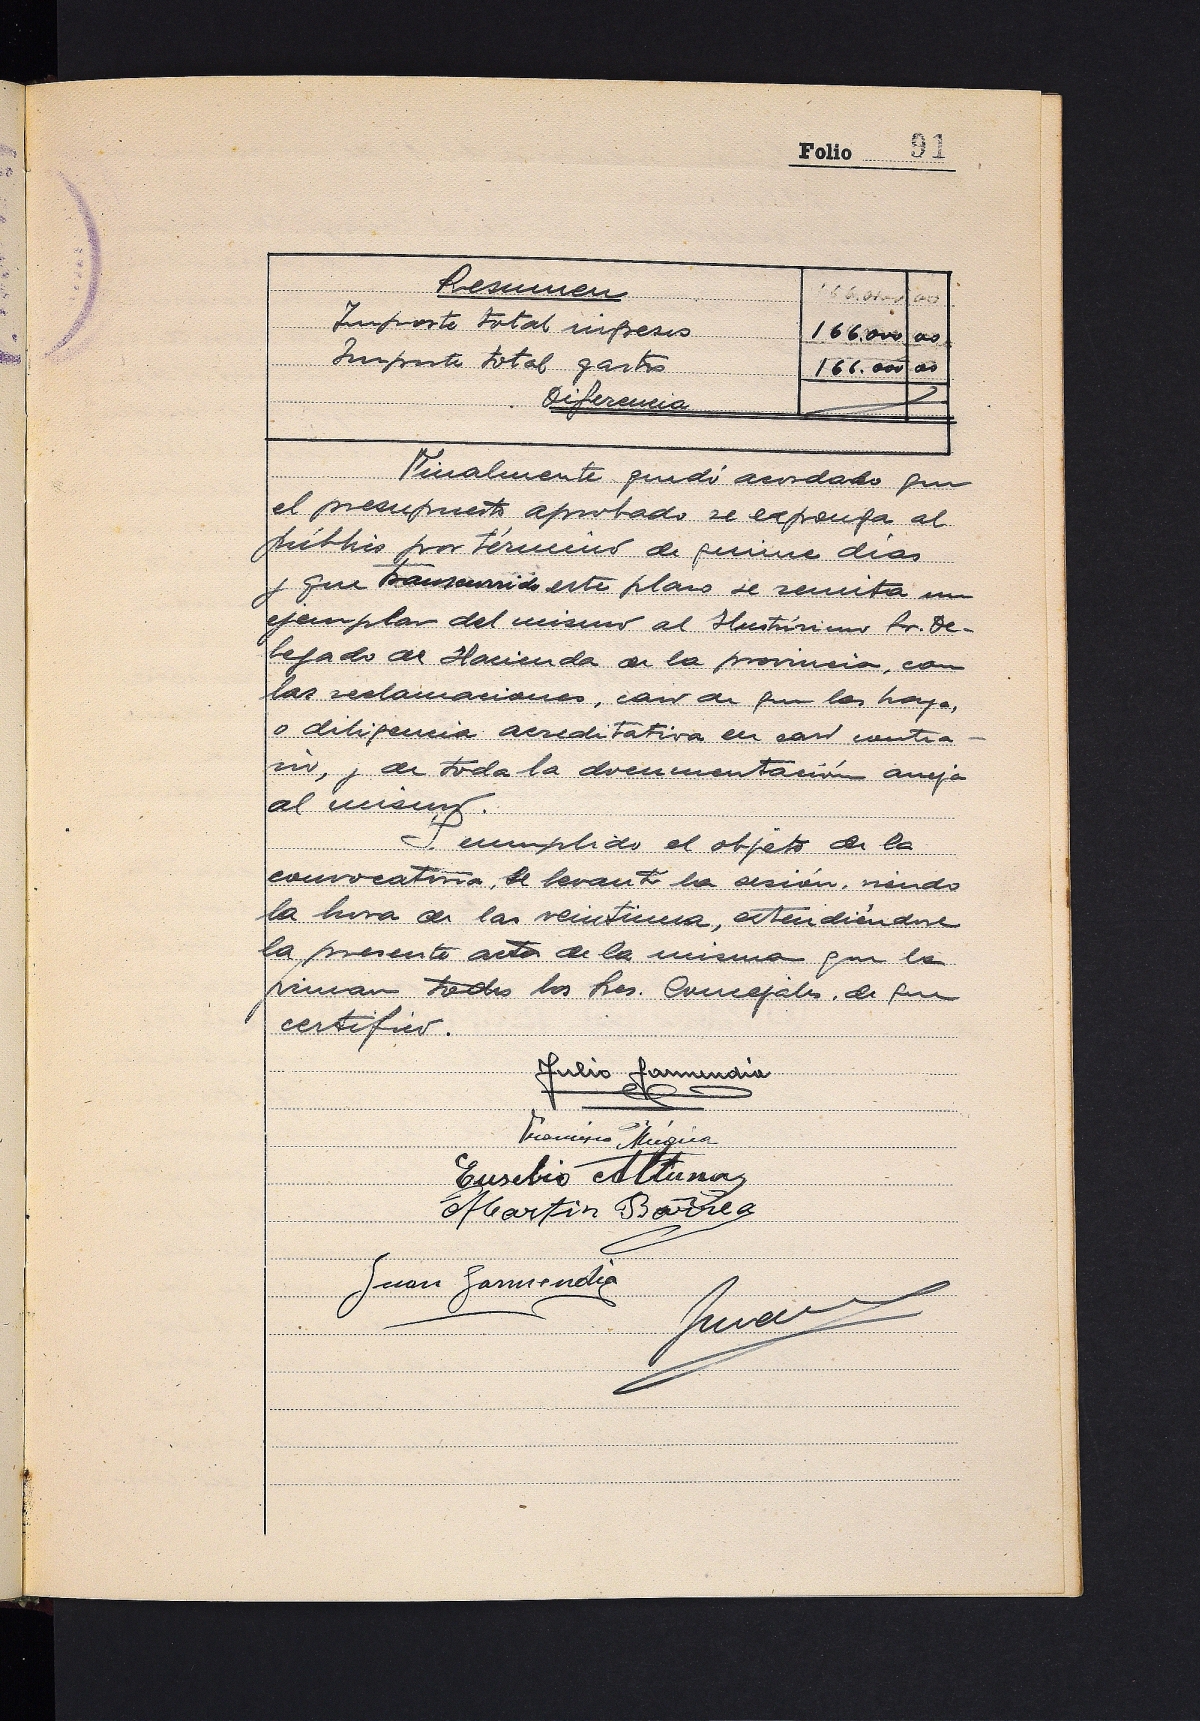 Folio 91
Resumen 166.000 00
Importe total ingresos 166.000 00
Importe total gastos 166.000 00
Diferencia
Finalmente quedó acordado que
el presupuesto aprobado se exponga al
público por término de quince días
y que transcurrido este plazo se remita un
ejemplar del mismo al Ilustrísimo Sr. De-
legado de Hacienda de la provincia, con
las reclamaciones, caso de que las haya,
o diligencia acreditativa en caso contra-
rio, y de toda la documentación aneja
al mismo.
Y cumplido el objeto de la
convocatoria, se levantó la sesión, siendo
la hora de las veintiuna, extendiéndose
la presente acta de la misma que la
firman todos los Sres. Concejales, de que
certifico.
Julio Garmendia
Francisco Múgica
Eusebio Altuna
Martin Barrea
Juan Garmendia